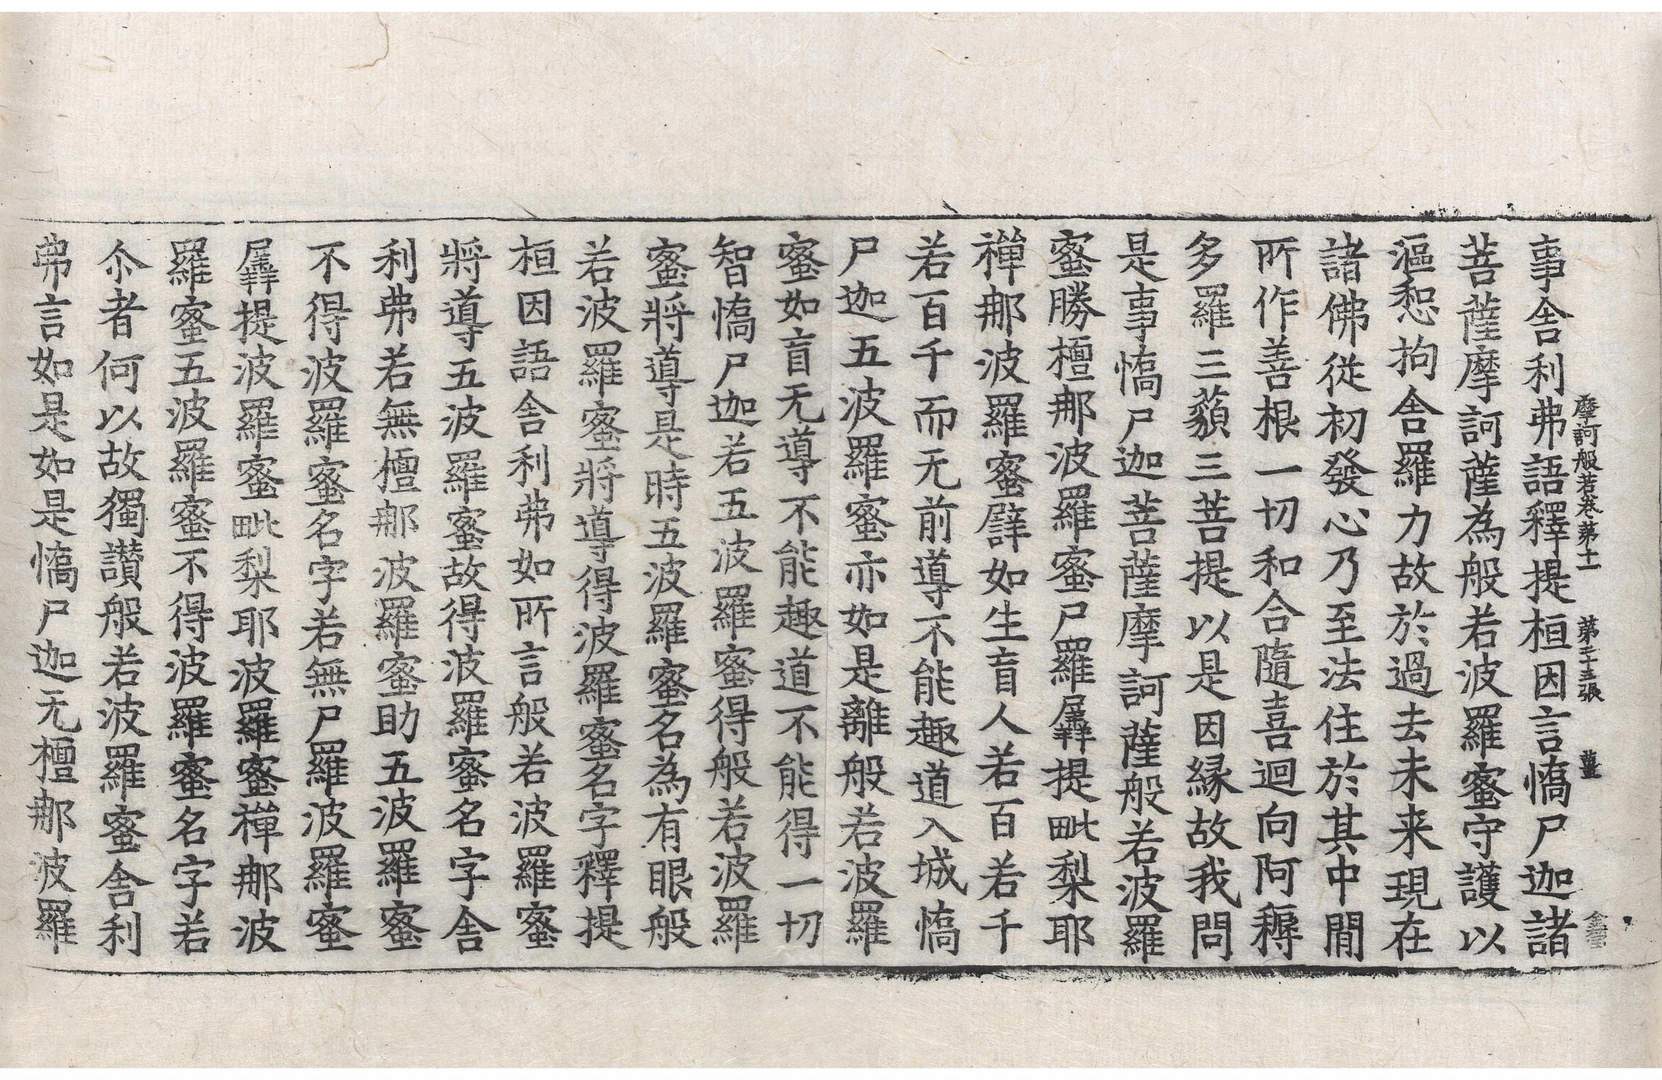 摩訶般若卷第十一　第二十五張　薑
事舎利弗語釋提桓因言憍尸迦諸
菩薩摩訶薩為般若波羅蜜守護以
漚惒拘舎羅力故於過去未来現在
諸佛從初發心乃至法住於其中閒
所作善根一切和合隨喜迴向阿耨
多羅三藐三菩提以是因縁故我問
是事憍尸迦菩薩摩訶薩般若波羅
蜜勝檀那波羅蜜尸羅羼提毗梨耶
禪那波羅蜜譬如生盲人若百若千
若百千而无前導不能趣道入城憍
尸迦五波羅蜜亦如是離般若波羅
蜜如盲无導不能趣道不能得一切
智憍尸迦若五波羅蜜得般若波羅
蜜將導是時五波羅蜜名為有眼般
若波羅蜜將導得波羅蜜名字釋提
桓因語舎利弗如所言般若波羅蜜
將導五波羅蜜故得波羅蜜名字舎
利弗若無檀那波羅蜜助五波羅蜜
不得波羅蜜名字若無尸羅波羅蜜
羼提波羅蜜毗梨耶波羅蜜禪那波
羅蜜五波羅蜜不得波羅蜜名字若
尒者何以故獨讃般若波羅蜜舎利
弗言如是如是憍尸迦无檀那波羅